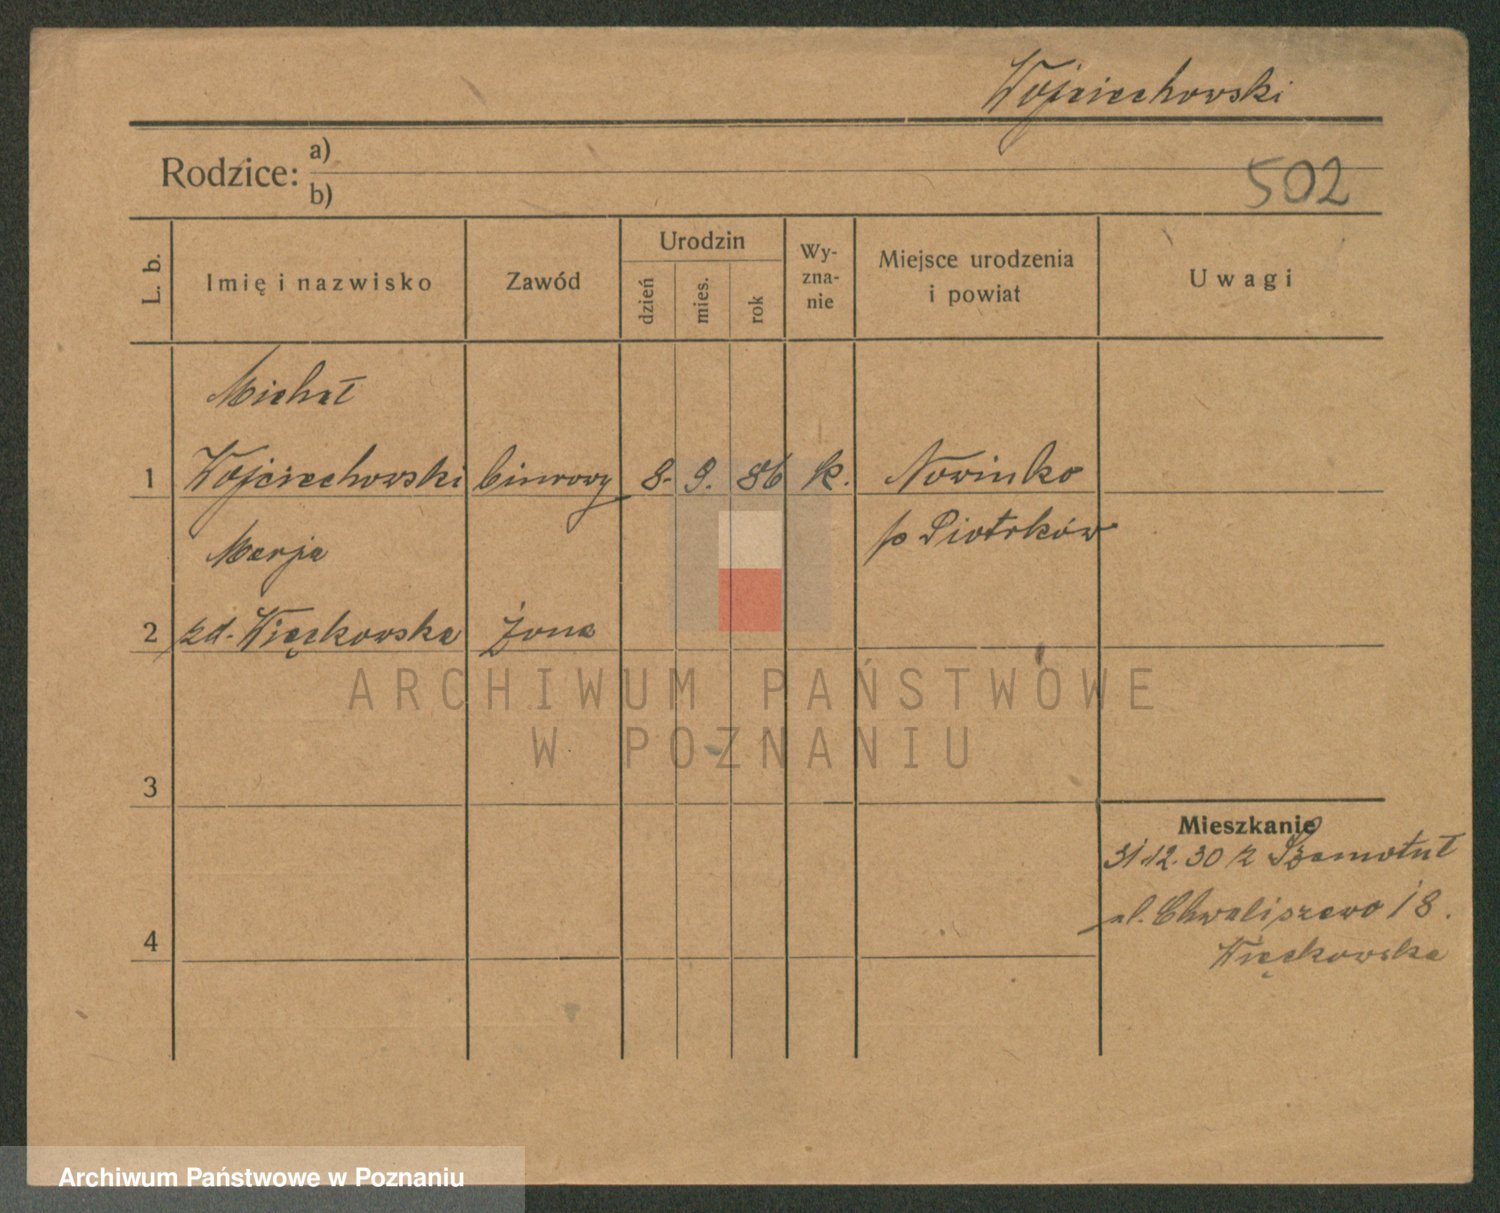 Wojciechowski
Rodzice: a)
b)
502
L. b.
Imię i nazwisko
Zawód
Urodzin
dzień
mies.
rok
Wy-
zna-
nie
Miejsce urodzenia
i powiat
Uwagi
Michał
1 Wojciechowski biurowy 8. 9. 86 k. Nowinko
Marja p Piotrków
2 zd. Więckowska żona
ARCHIWUM PAŃSTWOWE
W POZNANIU
3
Mieszkanie
31.12.30 z Szamotuł
ul. Chwaliszewo 18.
4
Więckowska
Archiwum Państwowe w Poznaniu